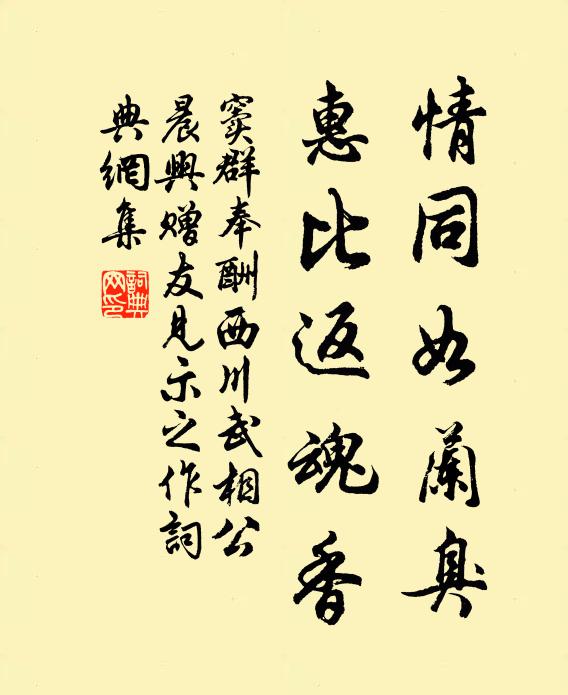 情同如蘭臭
惠比返魂香
窦群奉酬西川武相公
晨興赠友見示之作詞
典網集
詞典網印